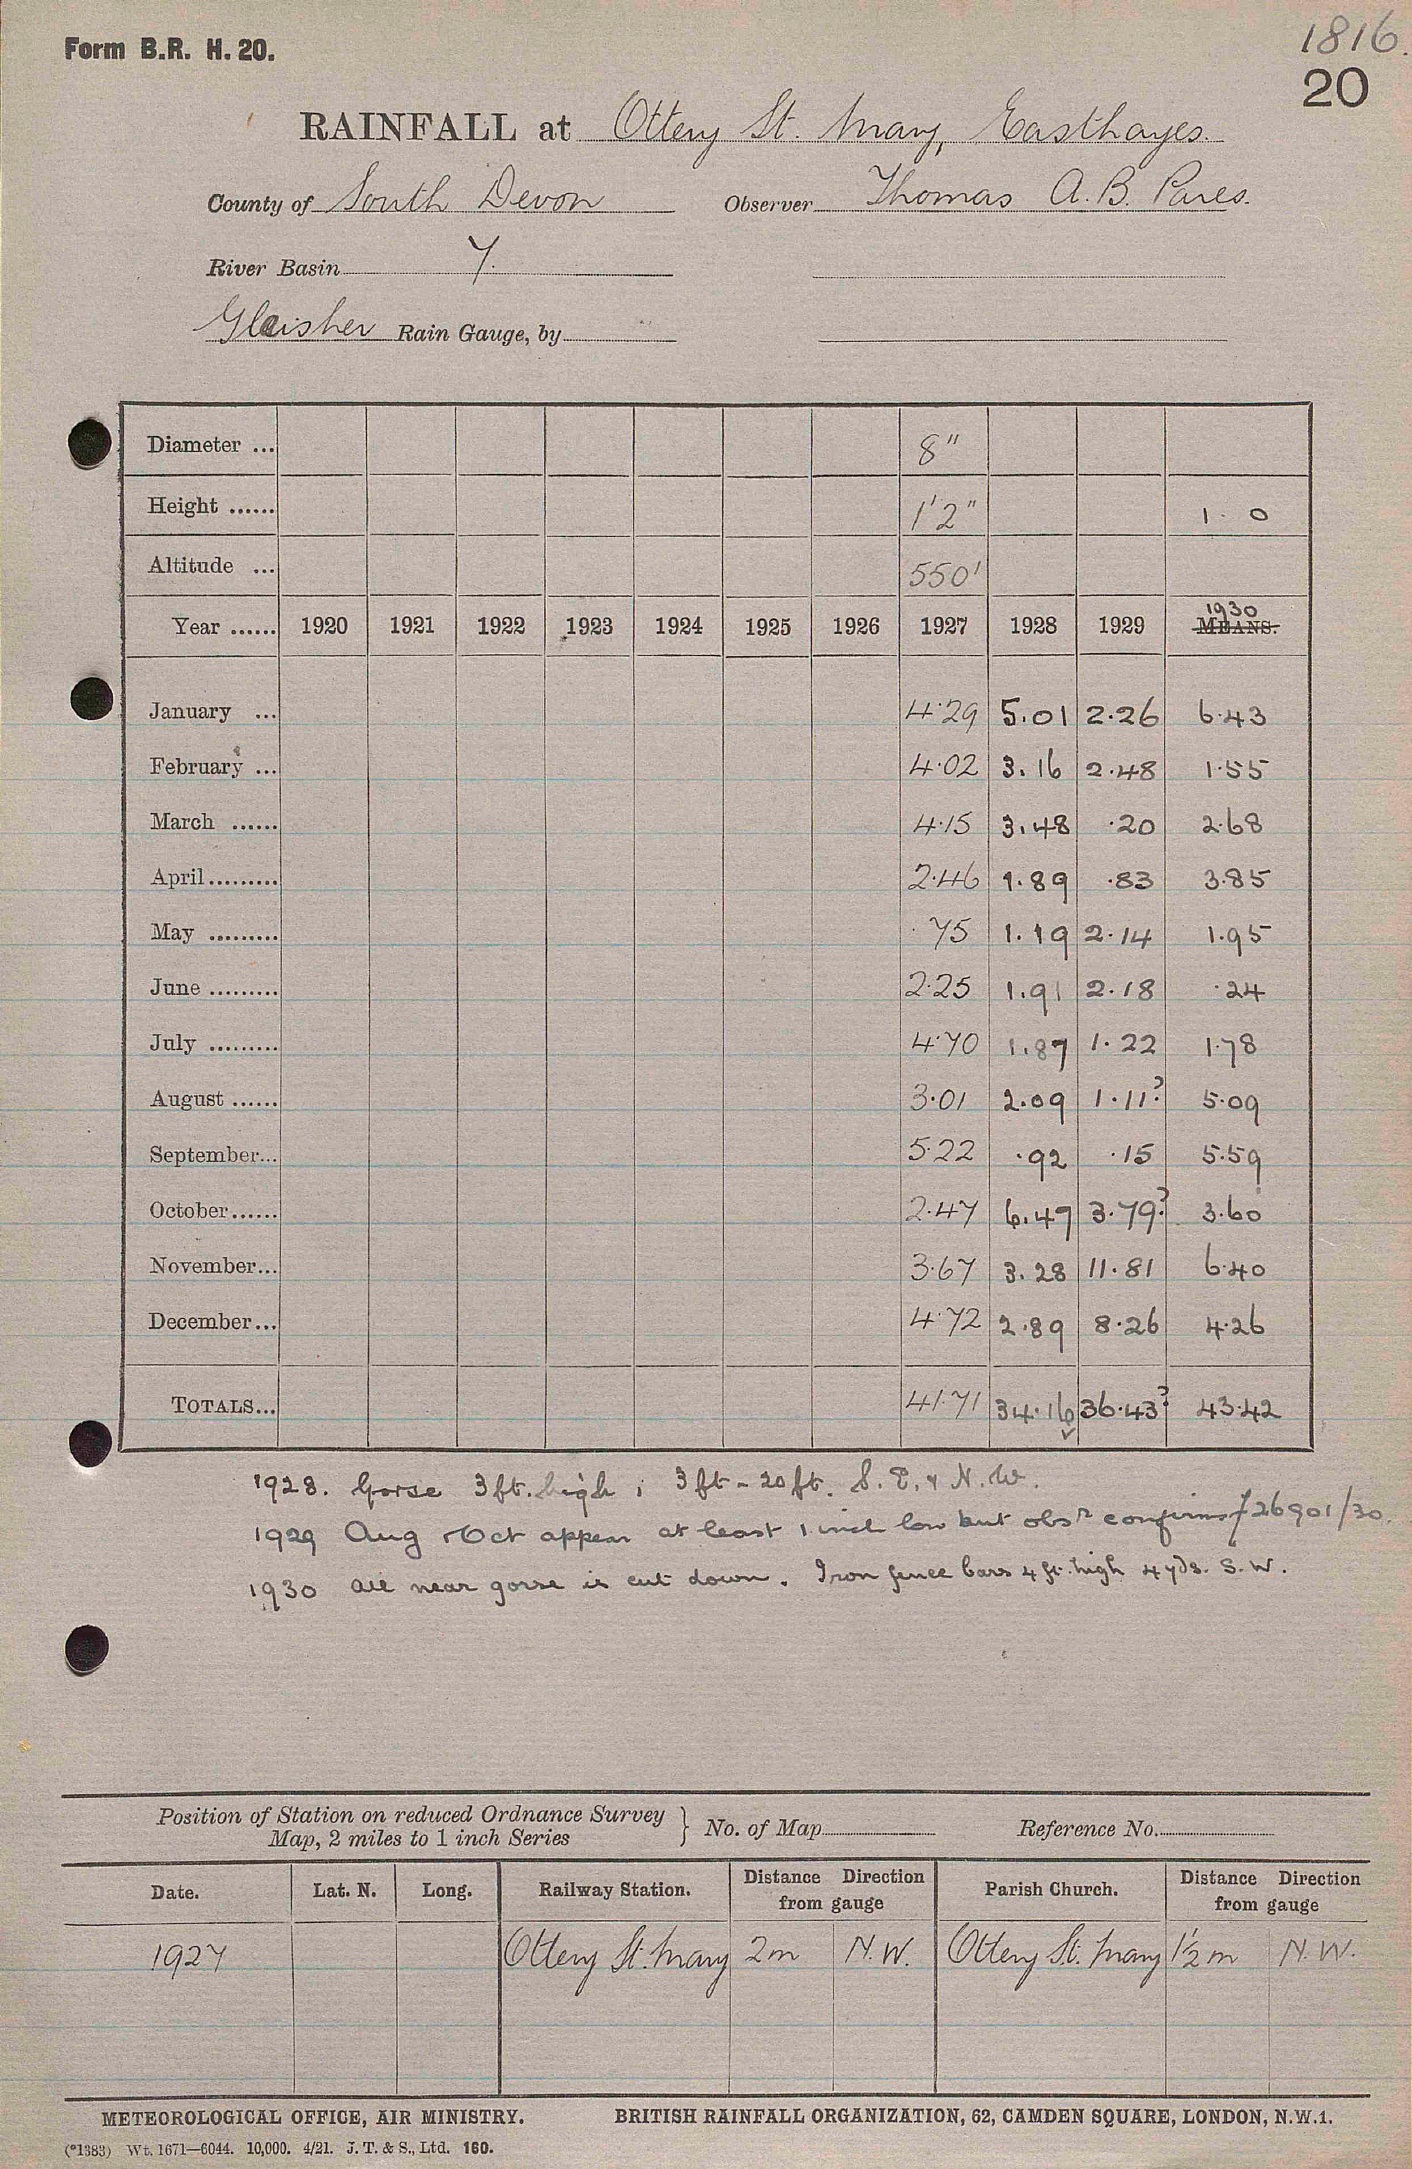 1816.
Form B.R. H. 20.
20
RAINFALL at Ottery St. Mary, Easthayes.
County of South Devon Observer Thomas A. B. Pares.
River Basin 7.
Glaisher Rain Gauge, by
Diameter ... 8"
Height ...... 1' 2" 1 · 0
Altitude ... 550'
Year ...... 1920 1921 1922 1923 1924 1925 1926 1927 1928 1929 1930 MEANS.
January ... 4·29 5.01 2·26 6·43
February ... 4·02 3.16 2·48 1·55
March ...... 4·15 3.48 ·20 2·68
April ......... 2·46 1.89 ·83 3·85
May ......... ·75 1.19 2·14 1·95
June ......... 2·25 1.91 2·18 ·24
July ......... 4·70 1.87 1·22 1·78
August ...... 3·01 2.09 1·11? 5·09
September... 5·22 ·92 ·15 5·59
October...... 2·47 6.47 3·79? 3·60
November... 3·67 3.28 11·81 6·40
December... 4·72 2.89 8·26 4·26
TOTALS... 41·71 34·16 36·43? 43·42
1928. Gorse 3 ft. high ; 3 ft - 20 ft. S. E. & N. W.
1929 Aug & Oct appear at least 1 inch low but obsr confirms f 26901/30.
1930 all near gorse is cut down. Iron fence bars 4 ft. high 4 yds. S. W.
Position of Station on reduced Ordnance Survey Map, 2 miles to 1 inch Series } No. of Map Reference No.
Date. Lat. N. Long. Railway Station. Distance Direction from gauge Parish Church. Distance Direction from gauge
1927 Ottery St. Mary 2 m N. W. Ottery St. Mary 1½ m N. W.
METEOROLOGICAL OFFICE, AIR MINISTRY. BRITISH RAINFALL ORGANIZATION, 62, CAMDEN SQUARE, LONDON, N.W.1.
(*1383) Wt. 1671—6044. 10,000. 4/21. J. T. & S., Ltd. 160.